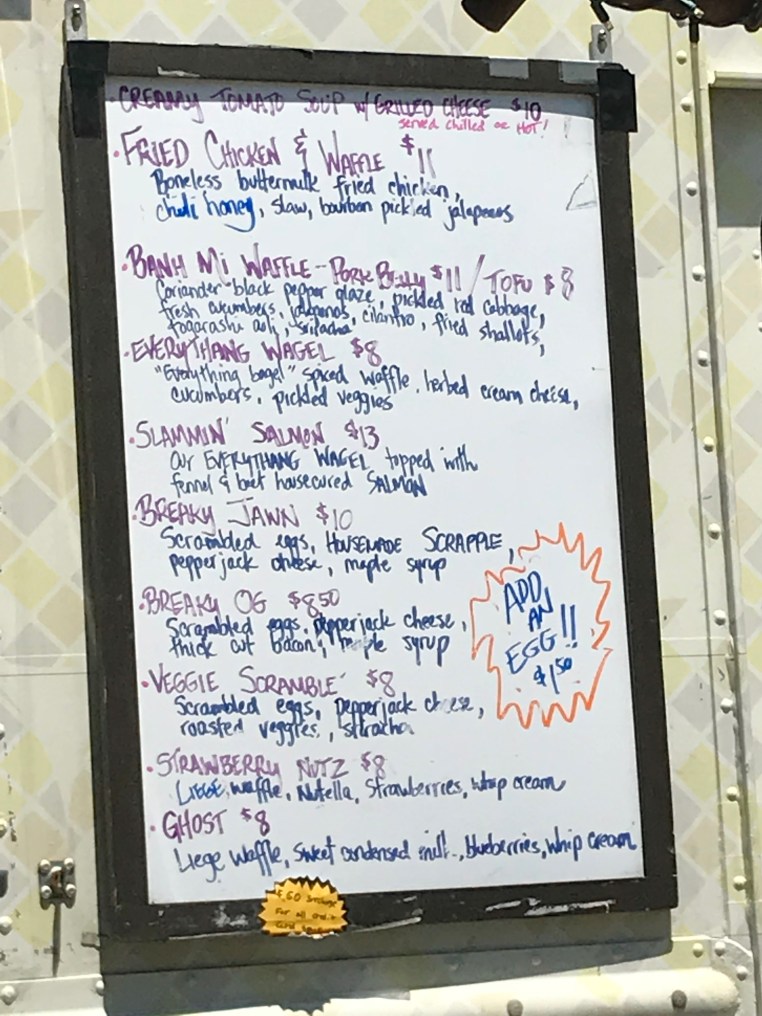 • CREAMY TOMATO SOUP w/ GRILLED CHEESE $10
served chilled or HOT!
• FRIED CHICKEN & WAFFLE $11
Boneless buttermilk fried chicken,
chili honey, slaw, bourbon pickled jalapenos
• BANH MI WAFFLE - PORK BELLY $11 / TOFU $8
Coriander-black pepper glaze, pickled red cabbage,
fresh cucumbers, jalapenos, cilantro, fried shallots,
togarashi aoli, sriracha
• EVERYTHANG WAGEL $8
"Everything bagel" spiced waffle, herbed cream cheese,
cucumbers, pickled veggies
• SLAMMIN' SALMON $13
our EVERYTHANG WAGEL topped with
fennel & beet housecured SALMON
• BREAKY JAWN $10
Scrambled eggs, HOUSEMADE SCRAPPLE,
pepperjack cheese, maple syrup
• BREAKY OG $8.50
Scrambled eggs, pepperjack cheese,
thick cut bacon, maple syrup
ADD
AN
EGG!!
$1.50
• VEGGIE SCRAMBLE $8
Scrambled eggs, pepperjack cheese,
roasted veggies, sriracha
• STRAWBERRY NUTZ $8
LIEGE waffle, Nutella, Strawberries, whip cream
• GHOST $8
Liege waffle, sweet condensed milk, blueberries, whip cream
For all